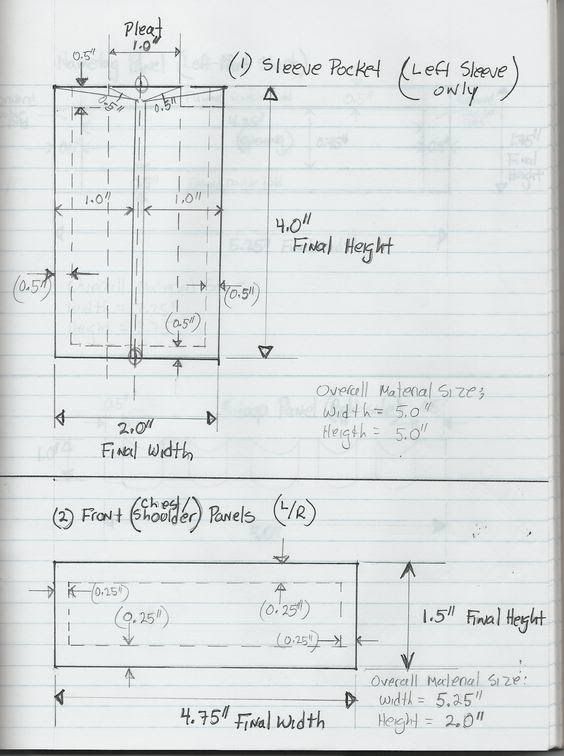 Pleat
1.0"
0.5"
(1) Sleeve Pocket (Left Sleeve only)
0.5"
0.5"
1.0"
1.0"
4.0"
Final Height
(0.5")
(0.5")
(0.5")
2.0"
Final Width
Overall Material Size:
Width = 5.0"
Heigth = 5.0"
(2) Front (Chest/Shoulder) Panels (L/R)
(0.25")
(0.25")
(0.25")
(0.25")
1.5" Final Height
4.75" Final Width
Overall Material Size:
Width = 5.25"
Height = 2.0"